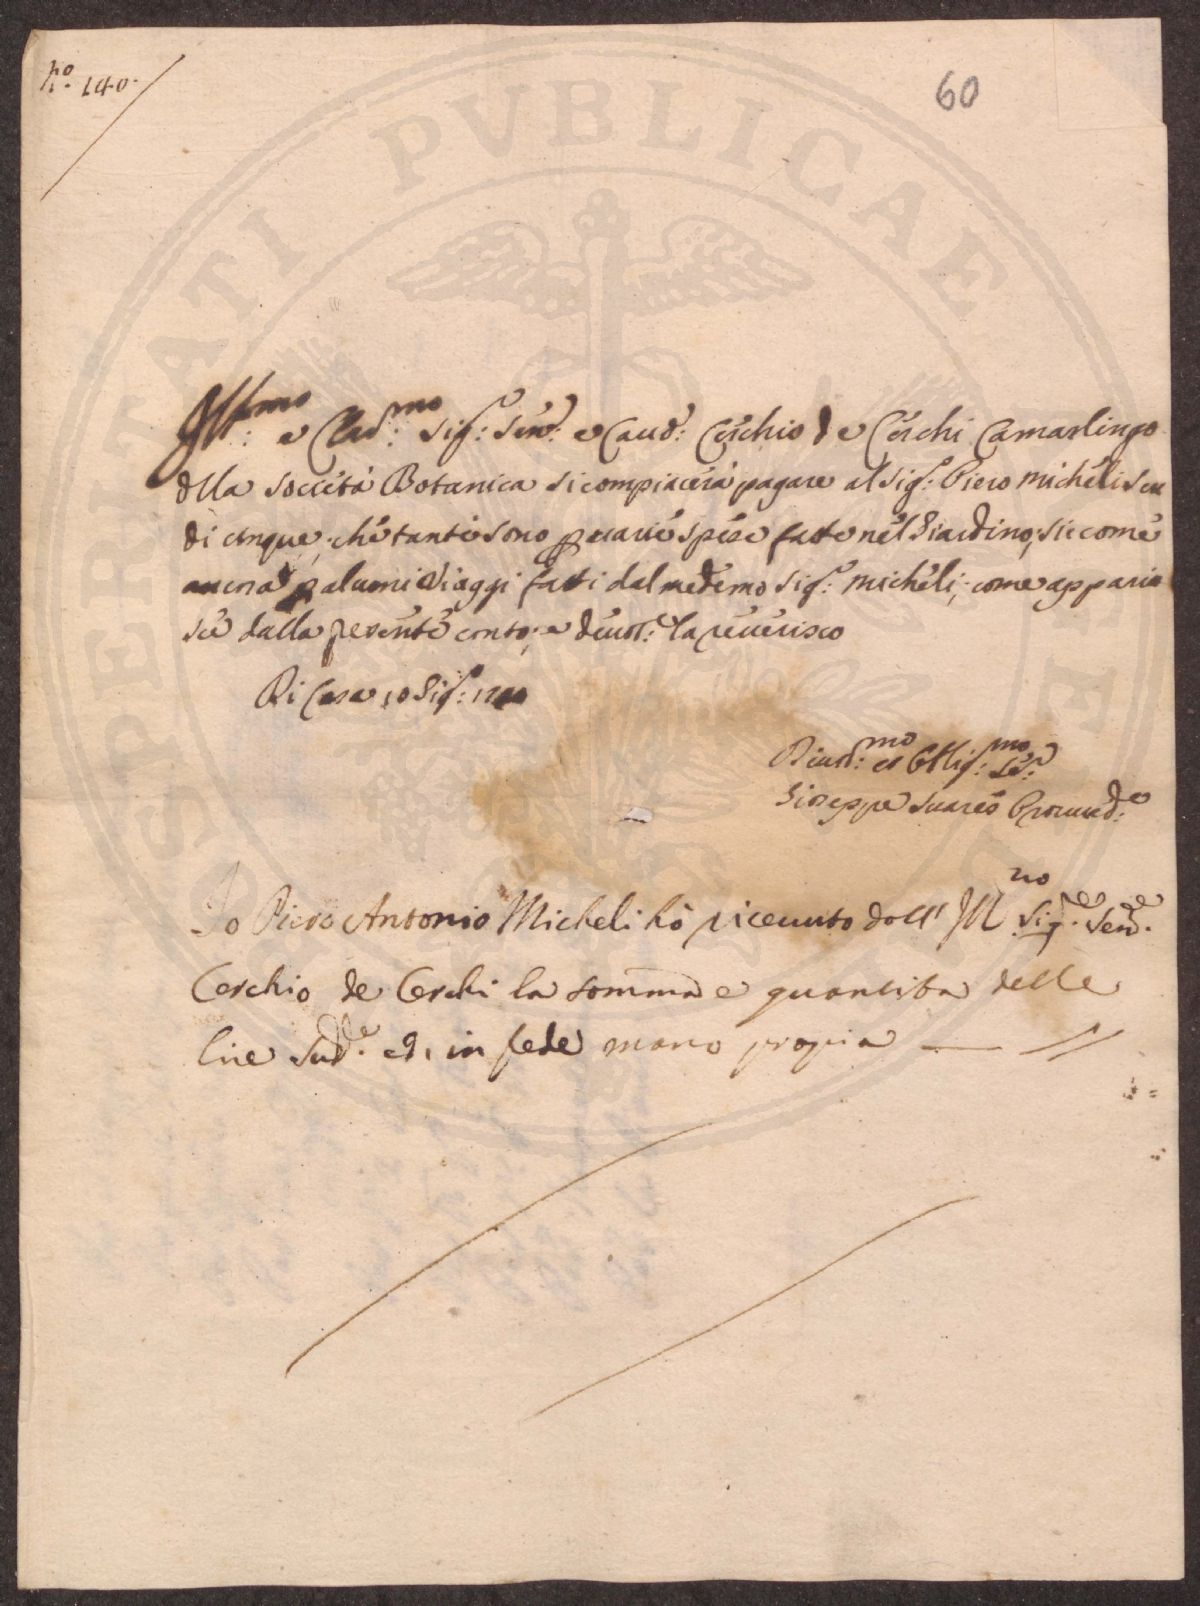 N.º 140.
60
PROSPERITATI PVBLICAE
Ill:mo e Clar:mo Sig:re Sen:e e Caud: Cerchio de Cerchi Camarlingo
della Soccietà Botanica si compiacerà pagare al Sig:re Piero Micheli scu
di cinque, che tanti sono p varie spese fatte nel Giardino, siccome
ancora p alcuni Viaggi fatti dal medemo Sig:re Micheli; come apparis
ce dalla presente conto; e deuot:te la reuerisco
Di Casa 10
Deuot:mo et Obblig:mo Ser:e
Gioseppe Suares Proueed:e
Io Piero Antonio Micheli hò riceuuto dall' Ill mo Sig.re Sen.e
Cerchio de Cerchi la somma e quantita delle
lire Sud.de et in fede mano propria